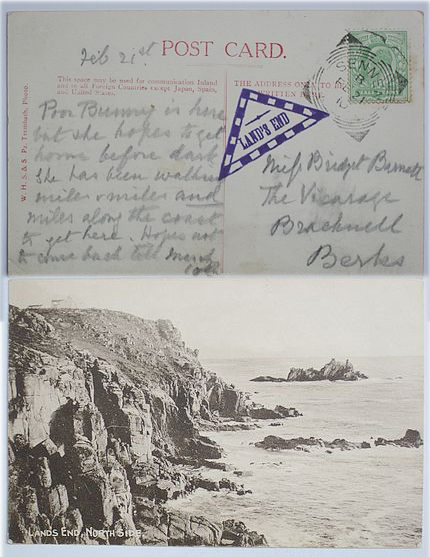 Feb 21st
POST CARD.
This space may be used for communication Inland
and to all Foreign Countries except Japan, Spain,
and United States.
THE ADDRESS ONLY TO BE
WRITTEN HERE.
W. H. S. & S. Pz. Treninnh, Photo.
SENN
LAND'S END
Poor Bunny is here
but she hopes to get
home before dark
She has been walking
miles & miles and
miles along the coast
to get here. Hopes not
to come back till March
10th
Miss Bridget Barnett
The Vicarage
Bracknell
Berks
LANDS END, NORTH SIDE.